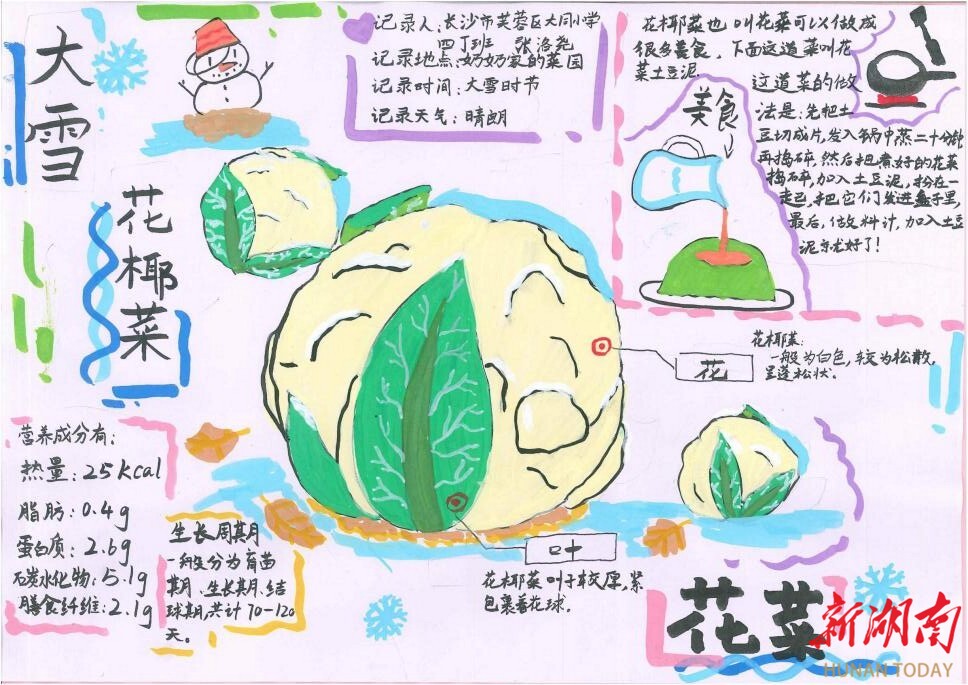 大雪
花椰菜
记录人:长沙市芙蓉区大同小学
四丁班 张洛尧
记录地点:奶奶家的菜园
记录时间:大雪时节
记录天气:晴朗
花椰菜也叫花菜可以做成
很多美食,下面这道菜叫花
菜土豆泥
这道菜的做
法是:先把土
豆切成片,发入锅中蒸二十分钟
再捣碎,然后把煮好的花菜
捣碎,加入土豆泥,扮在一
起,把它们发进盘子里,
最后,做料汁,加入土豆
泥就好了!
美食
花椰菜:
一般为白色,较为松散,
呈蓬松状。
花
营养成分有:
热量:25kcal
脂肪:0.4g
蛋白质:2.6g
石炭水化物:5.1g
膳食纤维:2.1g
生长周期
一般分为育苗
期、生长期、结
球期,共计70-120
天。
叶
花椰菜叶子较厚,紧
包裹着花球。
花菜
新湖南
HUNAN TODAY